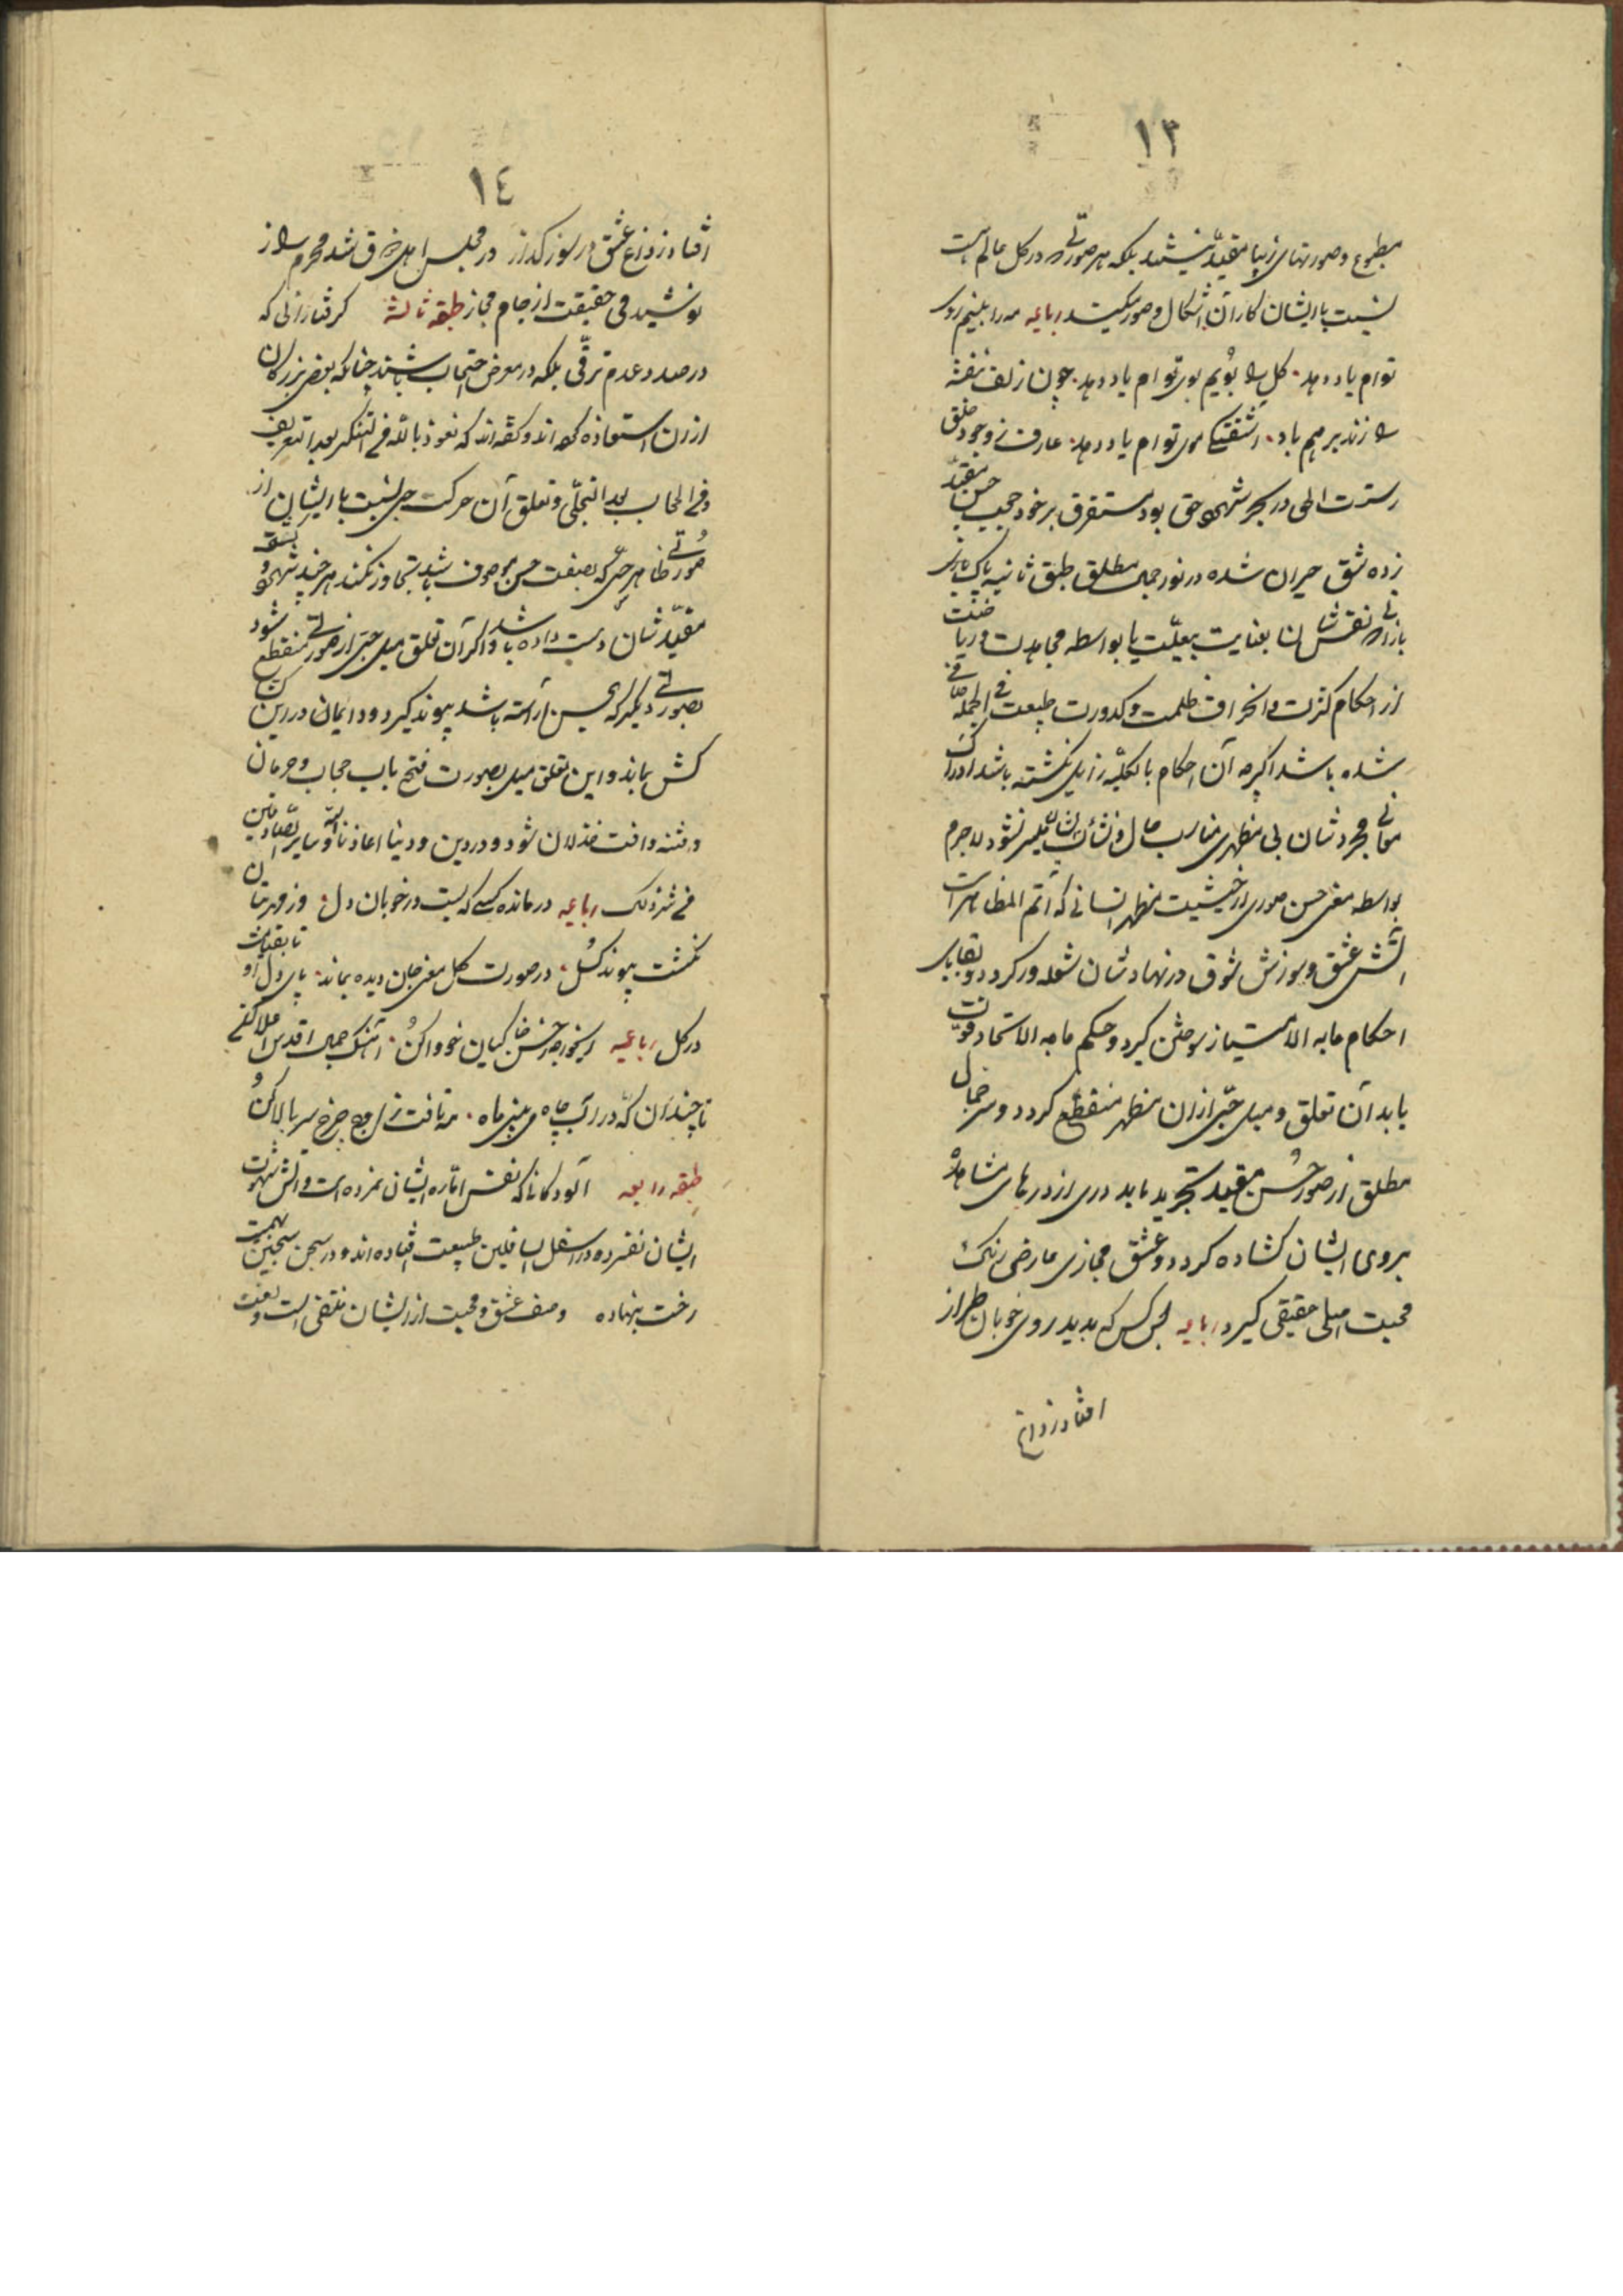 ١٣
مطبوع و صورتهای زیبا مقید نیستند بلکه هر صورتی که در کل عالم است
نسبت با ایشان کار آن اشکال و صور میکند رباعیه مه را بینم روی
توام یاد دهد. گل را بویم بوی توام یاد دهد. چون زلف بنفشه
را زند بر هم باد. آشفتگی موی توام یاد دهد. عارف ز وجود خلق
رستست الحق در بحر شهود حق بود مستغرق بر خود حجیب حسن مقید
زده شق حیران شده در نور جمال مطلق طبقه ثانیه پاک
بازانی که نفس شان بعنایت بیعلت یا بواسطه مجاهدت و ریاضت
از احکام کثرت و انحراف ظلمت و کدورت طبیعت فی الجمله صافی
شده باشد اگر چه آن احکام بالکلیه زایل نگشته باشد ادراک
معانی مجردشان بی مظهری مناسب حال و نشأت ایشان میسر نشود لاجرم
بواسطه معنی حسن صوری از حیثیت مظهر انسانی که اتم المظاهر است
آتش عشق و سوزش شوق در نهادشان شعله ور گردد و بقایای
احکام ما به الامتیاز سوختن گیرد و حکم ما به الاتحاد قوت
یابد آن تعلق و میل حبی از ان مظهر منقطع گردد و سر جمال
مطلق از صور حسن مقید تجرید یابد دری از درهای مشاهده
بروی ایشان گشاده گردد و عشق مجازی عارضی رنگ
محبت اصلی حقیقی گیرد رباعیه بس کس که بدید روی خوبان طراز
افتاد ز داغ
١٤
افتاد ز داغ عشق در سوز گداز در مجلس اهل ذوق شد محرم راز
نوشید می حقیقت از جام مجاز طبقه ثالثه گرفتارانی که
در صدد عدم ترقی بلکه در معرض احتجاب باشند چنانکه بعض بزرگان
از ان استعاذه کرده اند و گفته اند که نعوذ بالله من التنکر بعد التعریف
و من الحجاب بعد التجلی و تعلق آن حرکت حبی نسبت با ایشان از
صورتی ظاهر حسی که بصفت حسن موصوف باشد تجاوز نکند هر چند شهود و
مقیدشان دست داده باشد و اگر آن تعلق میل حبی از صورتی منقطع شود
بصورتی دیگر که بحسن آراسته باشد پیوند گیرد و دایمان در این کش
کش بماند و این تعلق میل بصورت فتح باب حجاب و حرمان
و فتنه و آفت خذلان شود و در دین و دنیا اعاذنا الله و سایر الصادقین
من شر ذلک رباعیه درمانده کسی که بست در خوبان دل. وز مهر بتان
نگشت پیوند گسل. در صورت گل معنی جان دیده بماند. پای دل او
در گل رباعیه ای خواجه ز حسن خاکیان خو وا کن. آهنگ جمال اقدس
تا چند ز آن که در آب چاه می بینی ماه. مه تافت ز اوج چرخ سر بالا کن
طبقه رابعه آلودگانی که نفس اماره ایشان نمرده است و آتش شهوت
ایشان نفسرده در اسفل السافلین طبیعت افتاده اند و در سجن سجین بهیمیت
رخت بنهاده وصف عشق و محبت از ایشان منتفی است و نعت